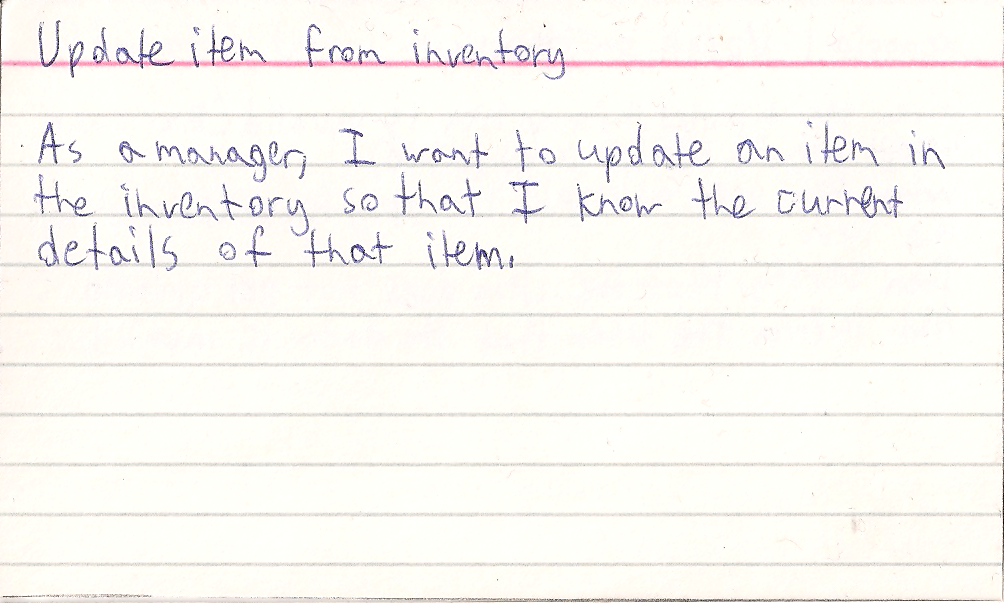 Update item from inventory
As a manager, I want to update an item in
the inventory so that I know the current
details of that item.